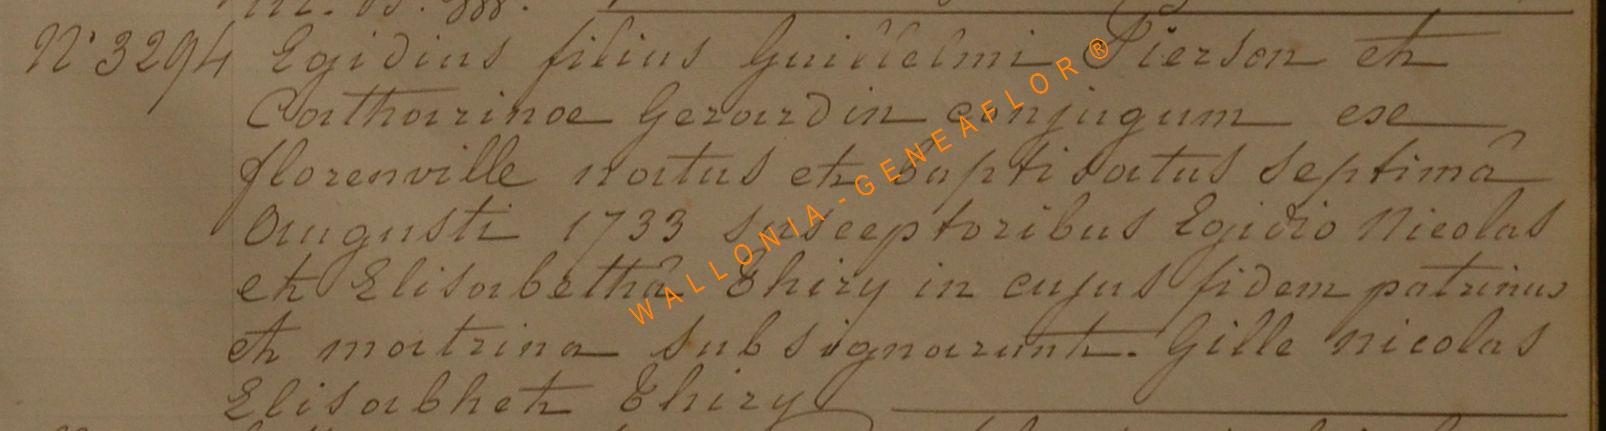 N° 3294 Egidius filius Guillelmi Pierson et
Catharinae Gerardin conjugum ex
florenville natus et baptisatus septimâ
Augusti 1733 susceptoribus Egidio Nicolas
et Elisabethâ Thiry in cujus fidem patrinus
et matrina subsignarunt. Gille Nicolas
Elisabhet Thiry
WALLONIA-GENEAFLOR®